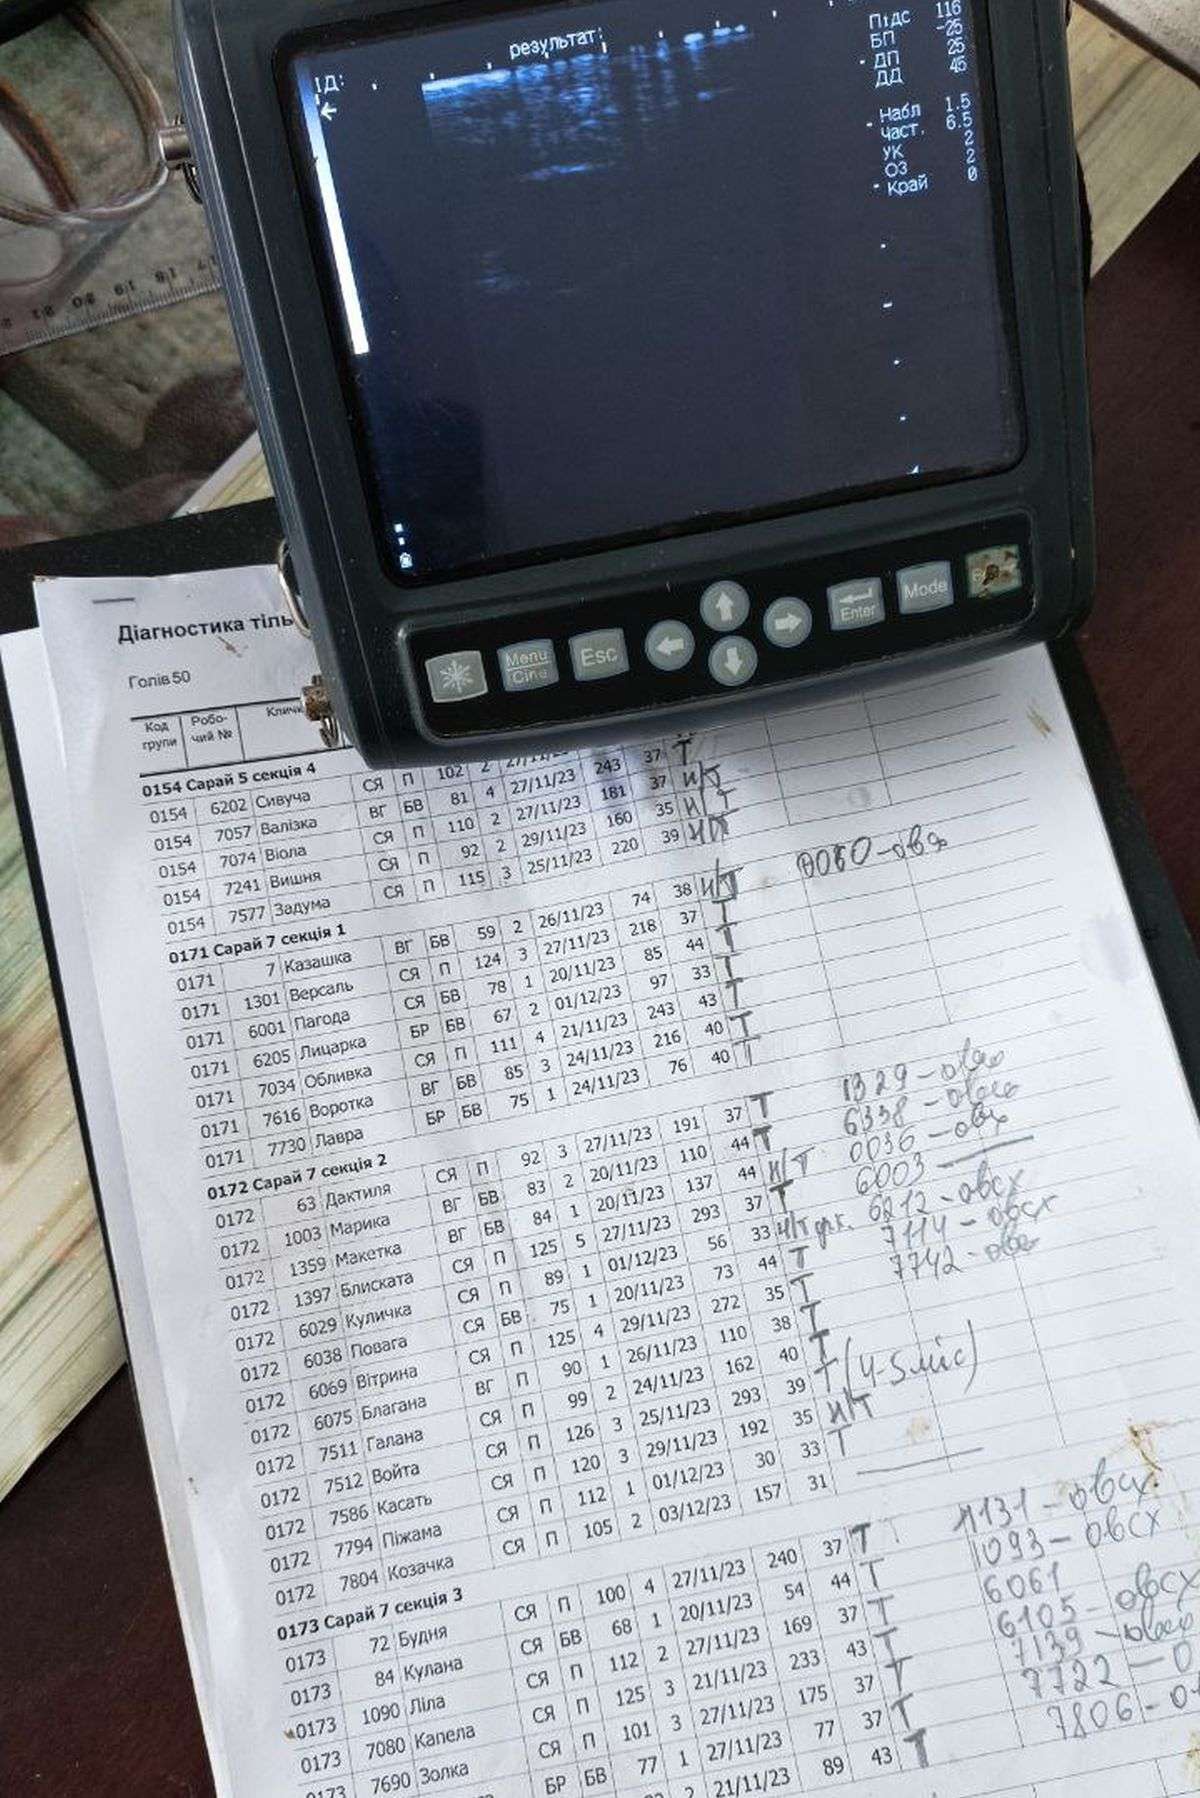 ІД:
результат:
Підс 116
БП -25
ДП 25
ДД 45
Набл 1.5
част. 6.5
УК 2
ОЗ 2
Край 0
17 18 19 20 21
Menu/Cine Esc Enter Mode
Діагностика тіль
Голів 50
Код групи Робо-чий № Кличк
0154 Сарай 5 секція 4
0154 6202 Сивуча СЯ П 102 2 27/11/
0154 7057 Валізка ВГ БВ 81 4 27/11/23 243 37 Т
0154 7074 Віола СЯ П 110 2 27/11/23 181 37 н/Т
0154 7241 Вишня СЯ П 92 2 29/11/23 160 35 н/Т
0154 7577 Задума СЯ П 115 3 25/11/23 220 39 н/Т
0171 Сарай 7 секція 1
0171 7 Казашка ВГ БВ 59 2 26/11/23 74 38 н/Т
0171 1301 Версаль СЯ П 124 3 27/11/23 218 37 Т
0171 6001 Пагода СЯ БВ 78 1 20/11/23 85 44 Т
0171 6205 Лицарка БР БВ 67 2 01/12/23 97 33 Т
0171 7034 Обливка СЯ П 111 4 21/11/23 243 43 Т
0171 7616 Воротка ВГ БВ 85 3 24/11/23 216 40 Т
0171 7730 Лавра БР БВ 75 1 24/11/23 76 40 Т
0172 Сарай 7 секція 2
0172 63 Дактиля СЯ П 92 3 27/11/23 191 37 Т
0172 1003 Марика ВГ БВ 83 2 20/11/23 110 44 Т
0172 1359 Макетка ВГ БВ 84 1 20/11/23 137 44 н/Т
0172 1397 Блиската СЯ П 125 5 27/11/23 293 37 Т
0172 6029 Куличка СЯ П 89 1 01/12/23 56 33 н/Т
0172 6038 Повага СЯ БВ 75 1 20/11/23 73 44 Т
0172 6069 Вітрина СЯ П 125 4 29/11/23 272 35 Т
0172 6075 Благана ВГ П 90 1 26/11/23 110 38 Т
0172 7511 Галана СЯ П 99 2 24/11/23 162 40 Т
0172 7512 Войта СЯ П 126 3 25/11/23 293 39 Т (4-5 міс)
0172 7586 Касать СЯ П 120 3 29/11/23 192 35 н/Т
0172 7794 Піжама СЯ П 112 1 01/12/23 30 33 Т
0172 7804 Козачка СЯ П 105 2 03/12/23 157 31
0173 Сарай 7 секція 3
0173 72 Будня СЯ П 100 4 27/11/23 240 37 Т
0173 84 Кулана СЯ БВ 68 1 20/11/23 54 44 Т
0173 1090 Ліла СЯ П 112 2 27/11/23 169 37 Т
0173 7080 Капела СЯ П 125 3 21/11/23 233 43 Т
0173 7690 Золка СЯ П 101 3 27/11/23 175 37 Т
БР БВ 77 1 27/11/23 77 37 Т
2 21/11/23 89 43 Т
1329 -
6338 -
0036 - овсх
6003
6212 - овсх
7114 - овсх
7742 -
1131 - овсх
1093 - овсх
6061
6105 - овсх
7139 -
7722 -
7806 -